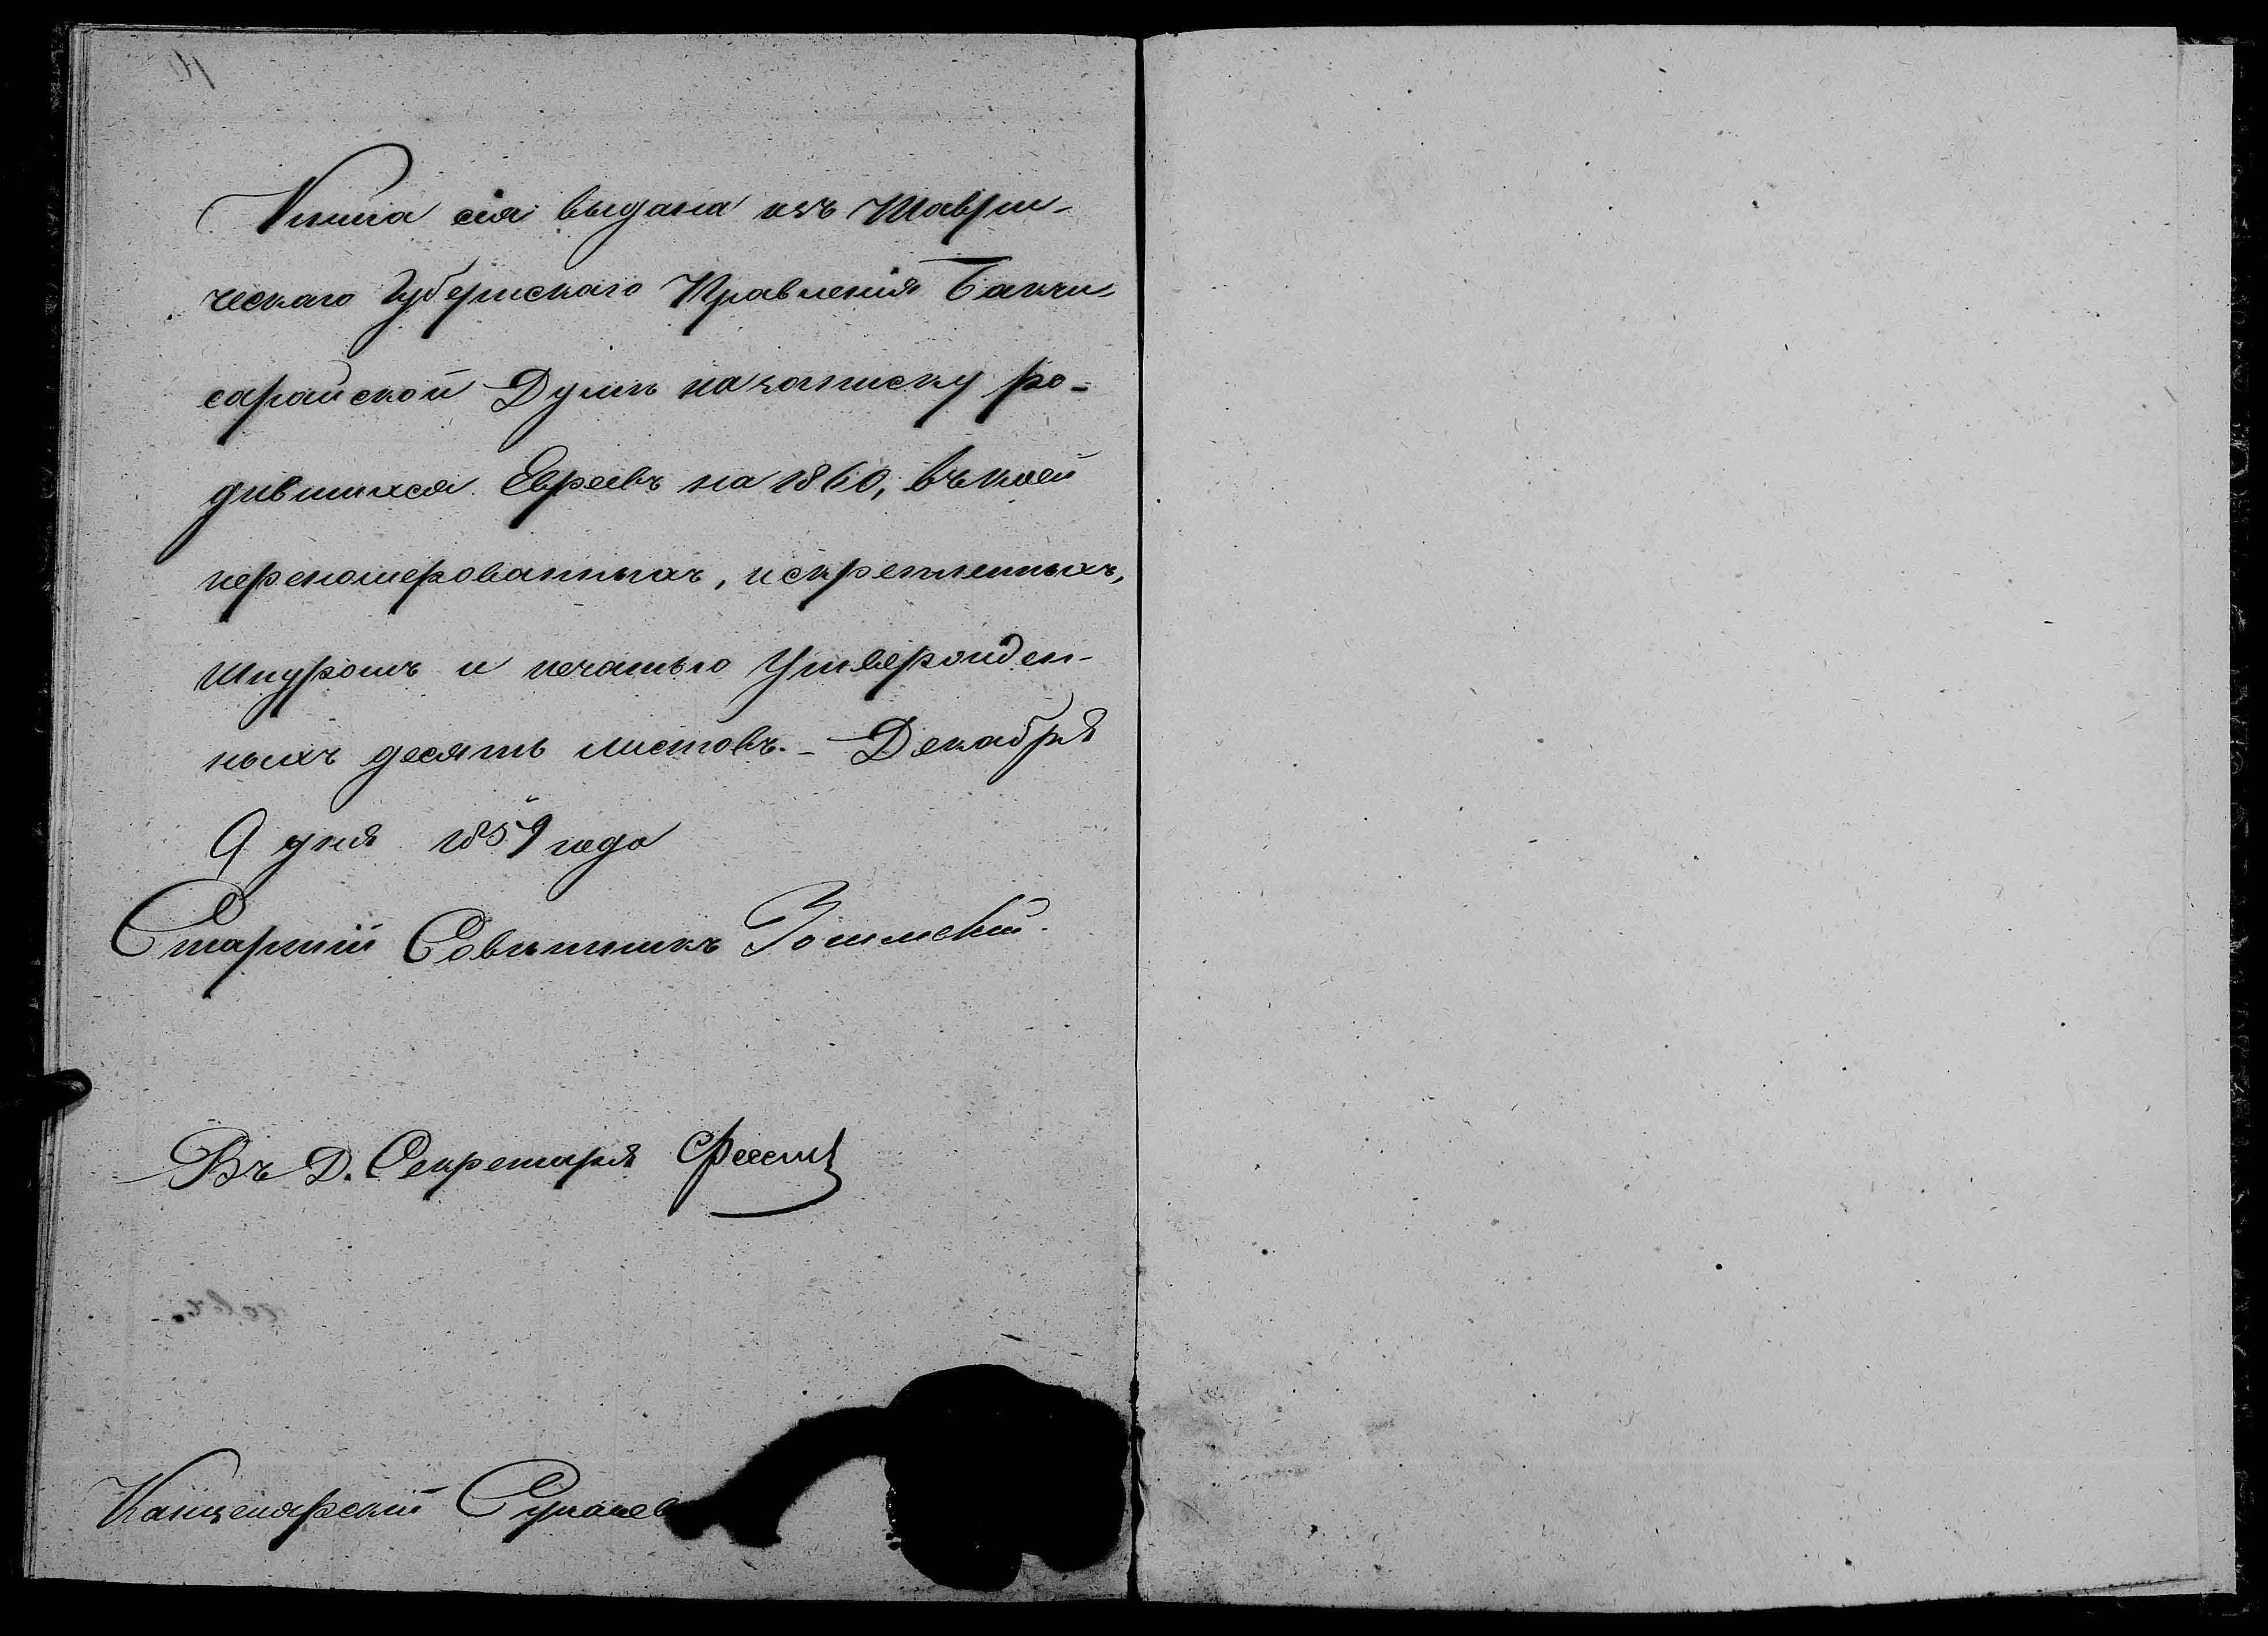 Книга сія выдана изъ Таври-
ческаго Губернскаго Правленія Бакчи-
сарайской Думѣ на записку ро-
дившихся Евреевъ на 1860, въ коей
перономерованныхъ, искрепленныхъ,
шнуромъ и печатью Утвержден-
ныхъ десять листовъ. - Декабря
9 дня 1859 года
Старшій Совѣтникъ
Въ Д. Секретаря
Канцелярскій